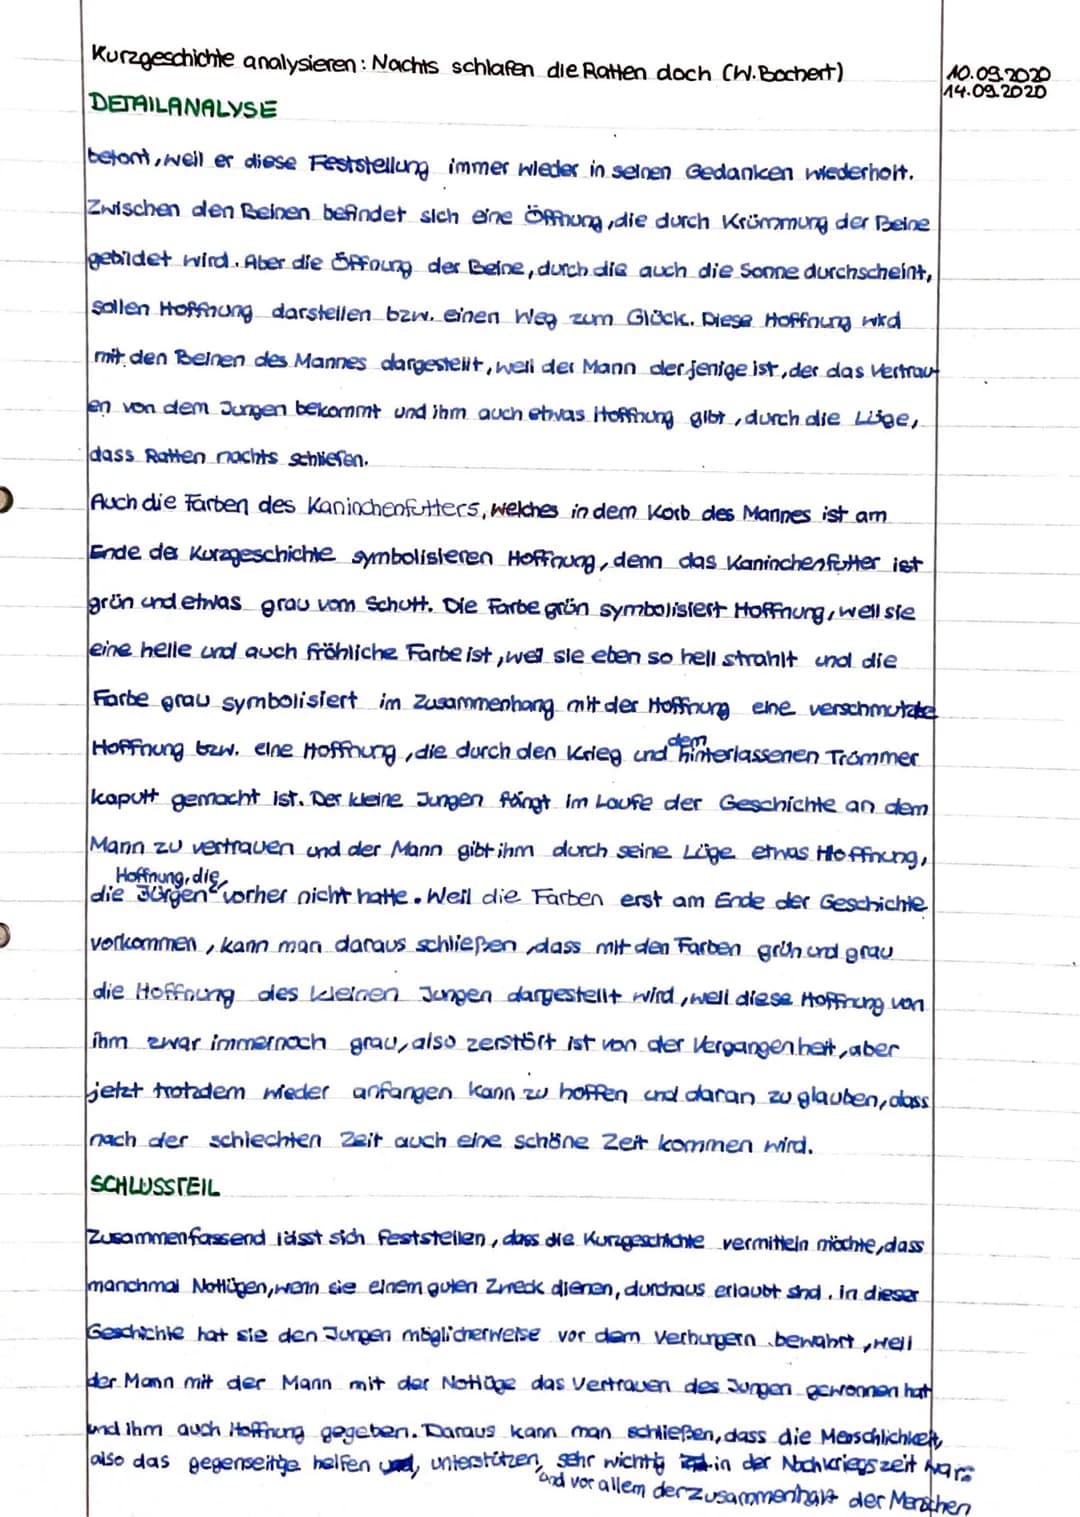 Kurzgeschichte analysieren: Nachts schlafen die Ratten doch (W. Bochert)
10.09.2020
14.09.2020
DETAILANALYSE
betont, weil er diese Feststellung immer wieder in seinen Gedanken wiederholt.
Zwischen den Beinen befindet sich eine Öffnung, die durch Krümmung der Beine
gebildet wird. Aber die Öffnung der Beine, durch die auch die Sonne durchscheint,
sollen Hoffnung darstellen bzw. einen Weg zum Glück. Diese Hoffnung wird
mit den Beinen des Mannes dargestellt, weil der Mann derjenige ist, der das Vertrau
en von dem Jungen bekommt und ihm auch etwas Hoffnung gibt, durch die Lüge,
dass Ratten nachts schliefen.
Auch die Farben des Kaninchenfutters, welches in dem Korb des Mannes ist am
Ende der Kurzgeschichte symbolisieren Hoffnung, denn das Kaninchenfutter ist
grün und etwas grau vom Schutt. Die Farbe grün symbolisiert Hoffnung, weil sie
eine helle und auch fröhliche Farbe ist, weil sie eben so hell strahlt und die
Farbe grau symbolisiert im Zusammenhang mit der Hoffnung eine verschmutzte
Hoffnung bzw. eine Hoffnung, die durch den Krieg und dem hinterlassenen Trümmer
kaputt gemacht ist. Der kleine Jungen fängt im Laufe der Geschichte an dem
Mann zu vertrauen und der Mann gibt ihm durch seine Lüge etwas Hoffnung,
Hoffnung, die
die Jürgen vorher nicht hatte. Weil die Farben erst am Ende der Geschichte
vorkommen, kann man daraus schließen, dass mit den Farben grün und grau
die Hoffnung des kleinen Jungen dargestellt wird, weil diese Hoffnung von
ihm zwar immernoch grau, also zerstört ist von der Vergangenheit, aber
jetzt trotzdem wieder anfangen kann zu hoffen und daran zu glauben, dass
nach der schlechten Zeit auch eine schöne Zeit kommen wird.
SCHLUSSTEIL
Zusammenfassend lässt sich feststellen, dass die Kurzgeschichte vermitteln möchte, dass
manchmal Notlügen, wenn sie einem guten Zweck dienen, durchaus erlaubt sind. in dieser
Geschichte hat sie den Jungen möglicherweise vor dem Verhungern bewahrt, weil
der Mann mit der Mann mit der Notlüge das Vertrauen des Jungen gewonnen hat
und ihm auch Hoffnung gegeben. Daraus kann man schließen, dass die Menschlichkeit,
also das gegenseitige helfen und, unterstützen, sehr wichtig in der Nachkriegszeit war.
und vor allem der zusammenhalt der Menschen